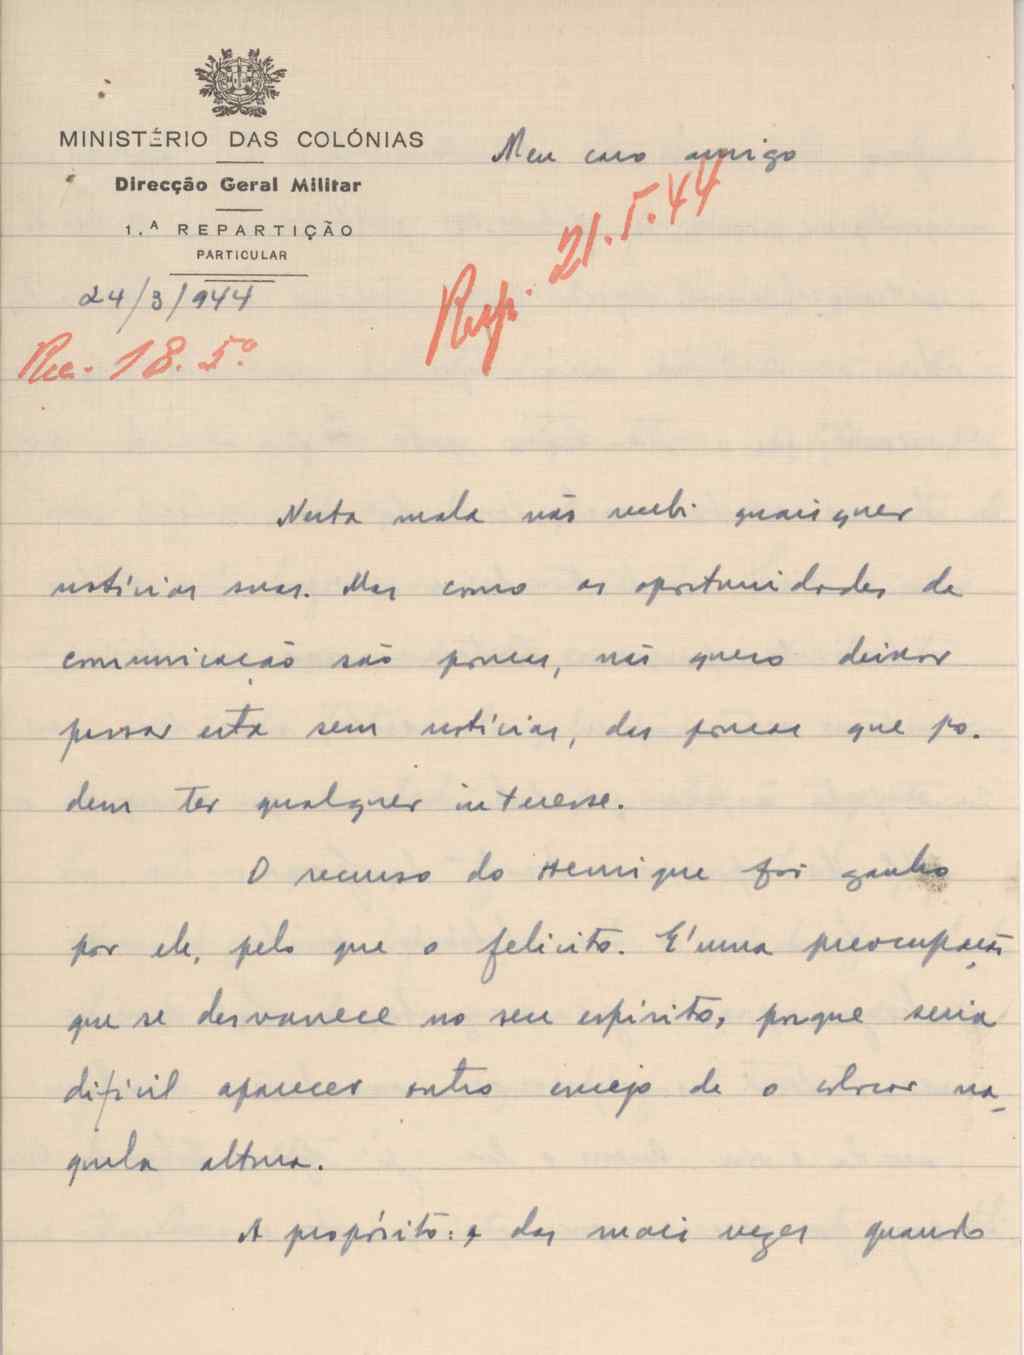 MINISTÉRIO DAS COLÓNIAS
Direcção Geral Militar
1.ª REPARTIÇÃO
PARTICULAR
24/3/944
Rec. 18.5º
Meu caro amigo
Resp. 21.5.44
Nesta mala não recebi quaisquer
notícias suas. Mas como as oportunidades de
comunicação são poucas, não quero deixar
passar esta sem notícias, das poucas que po-
dem ter qualquer interesse.
O recurso do Henrique foi ganho
por ele, pelo que o felicito. E' uma preocupação
que se desvanece no seu espírito, porque seria
difícil aparecer outro ensejo de o colocar na-
quela altura.
A propósito: das mais vezes quando